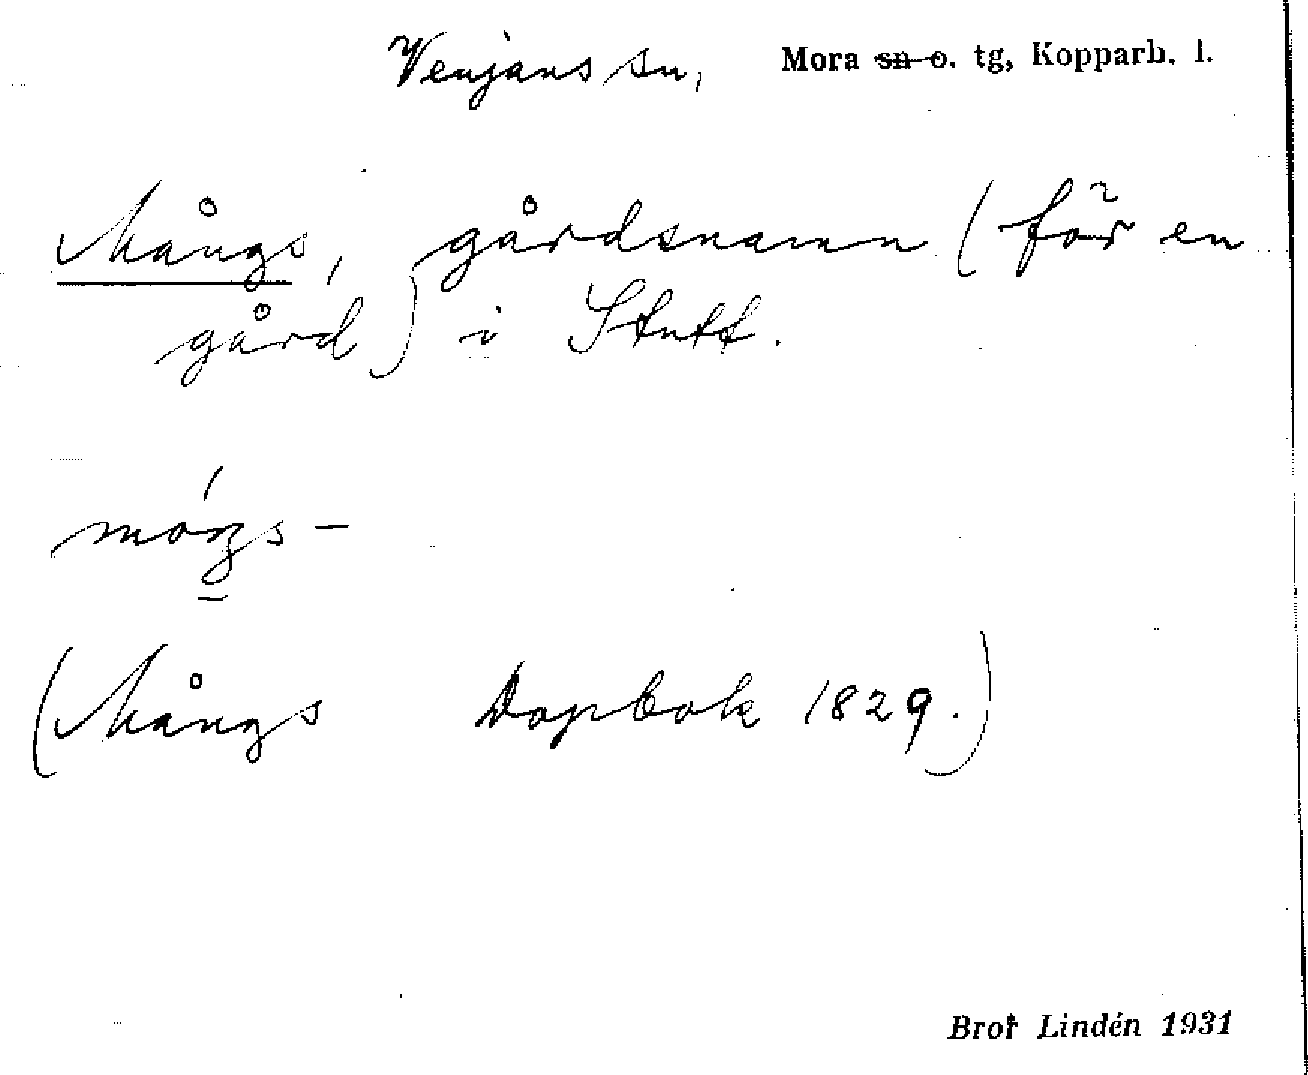 Venjans sn, Mora sn o. tg, Kopparb. l.
Mångs, gårdsnamn (för en
gård) i Stutt.
móŋs-
(Mångs Dopbok 1829.)
Bror Lindén 1931